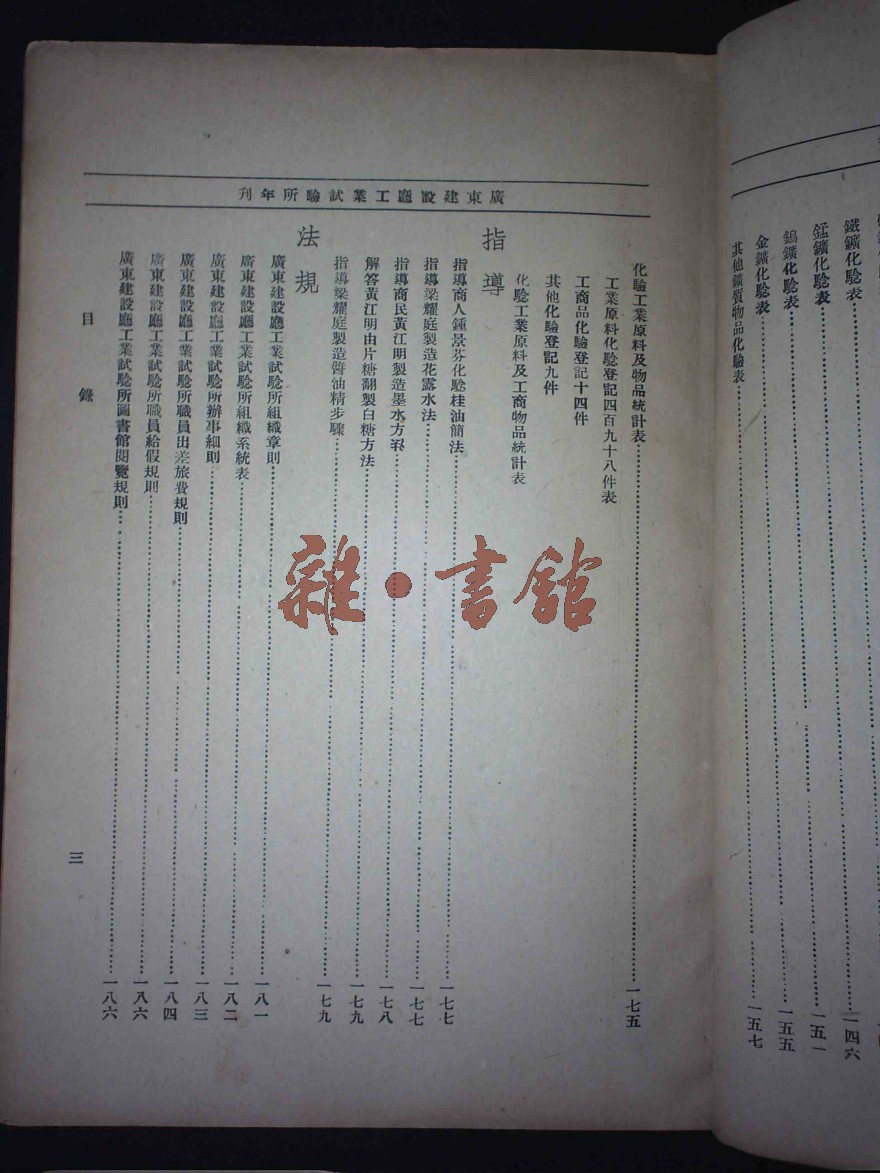 鐵鑛化騐表 一四六
錳鑛化騐表 一五一
鎢鑛化騐表 一五五
金鑛化騐表
其他鑛質物品化驗表 一五七
廣東建設廳工業試驗所年刊
化驗工業原料及物品統計表 一七五
工業原料化驗登記四百九十八件表
工商品化驗登記十四件
其他化驗登記九件
化騐工業原料及工商物品統計表
指導
指導商人鍾景芬化騐桂油簡法 一七七
指導梁耀庭製造花露水法 一七七
指導商民黃江明製造墨水方 一七八
解答黃江明由片糖翻製白糖方法 一七九
指導梁耀庭製造醬油精步驟 一七九
法規
廣東建設廳工業試騐所組織章則 一八一
廣東建設廳工業試騐所組織系統表 一八二
廣東建設廳工業試騐所辦事細則 一八三
廣東建設廳工業試騐所職員出差旅費規則 一八四
廣東建設廳工業試騐所職員給假規則 一八六
廣東建設廳工業試騐所圖書館閱覽規則 一八六
目錄
三
雜·書館